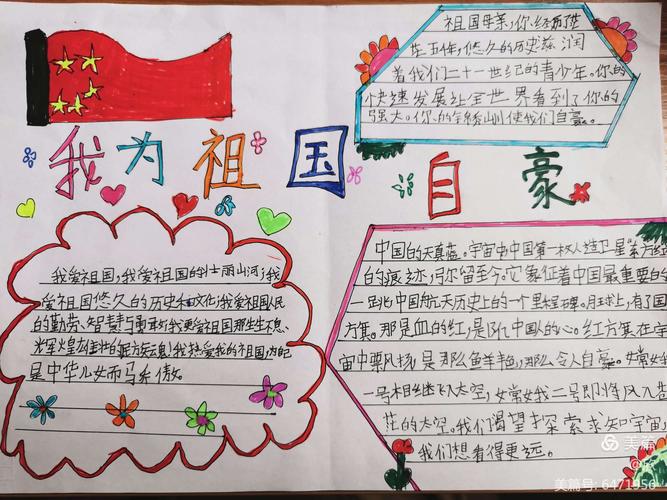 我为祖国自豪
祖国母亲，你经历了
年，悠久的历史滋润
着我们二十一世纪的青少年。你的
快速发展让全世界看到了你的
强大。你的锦绣山川使我们自豪。
我爱祖国，我爱祖国的壮丽山河；我
爱祖国悠久的历史和文化；我爱祖国人民
的勤劳、智慧与勇敢；我更爱祖国那生生不息、
辉煌雄壮的民族魂！我热爱我的祖国，为
是中华儿女而骄傲。
中国的天真蓝。宇宙中中国第一枚人造卫星“东方红
的痕迹，弥留至今。它象征着中国最重要的
一跳中国航天历史上的一个里程碑。月球上，有了国
方寨。那是血的红，是13亿中国人的心。红方寨在宇
宙中飘扬，是那么鲜艳，那么令人自豪。嫦娥
一号相继飞入太空，嫦娥二号即将飞入
茫的太空。我们渴望探索求知宇宙，
我们想看得更远。
美篇
美篇号: 6471956